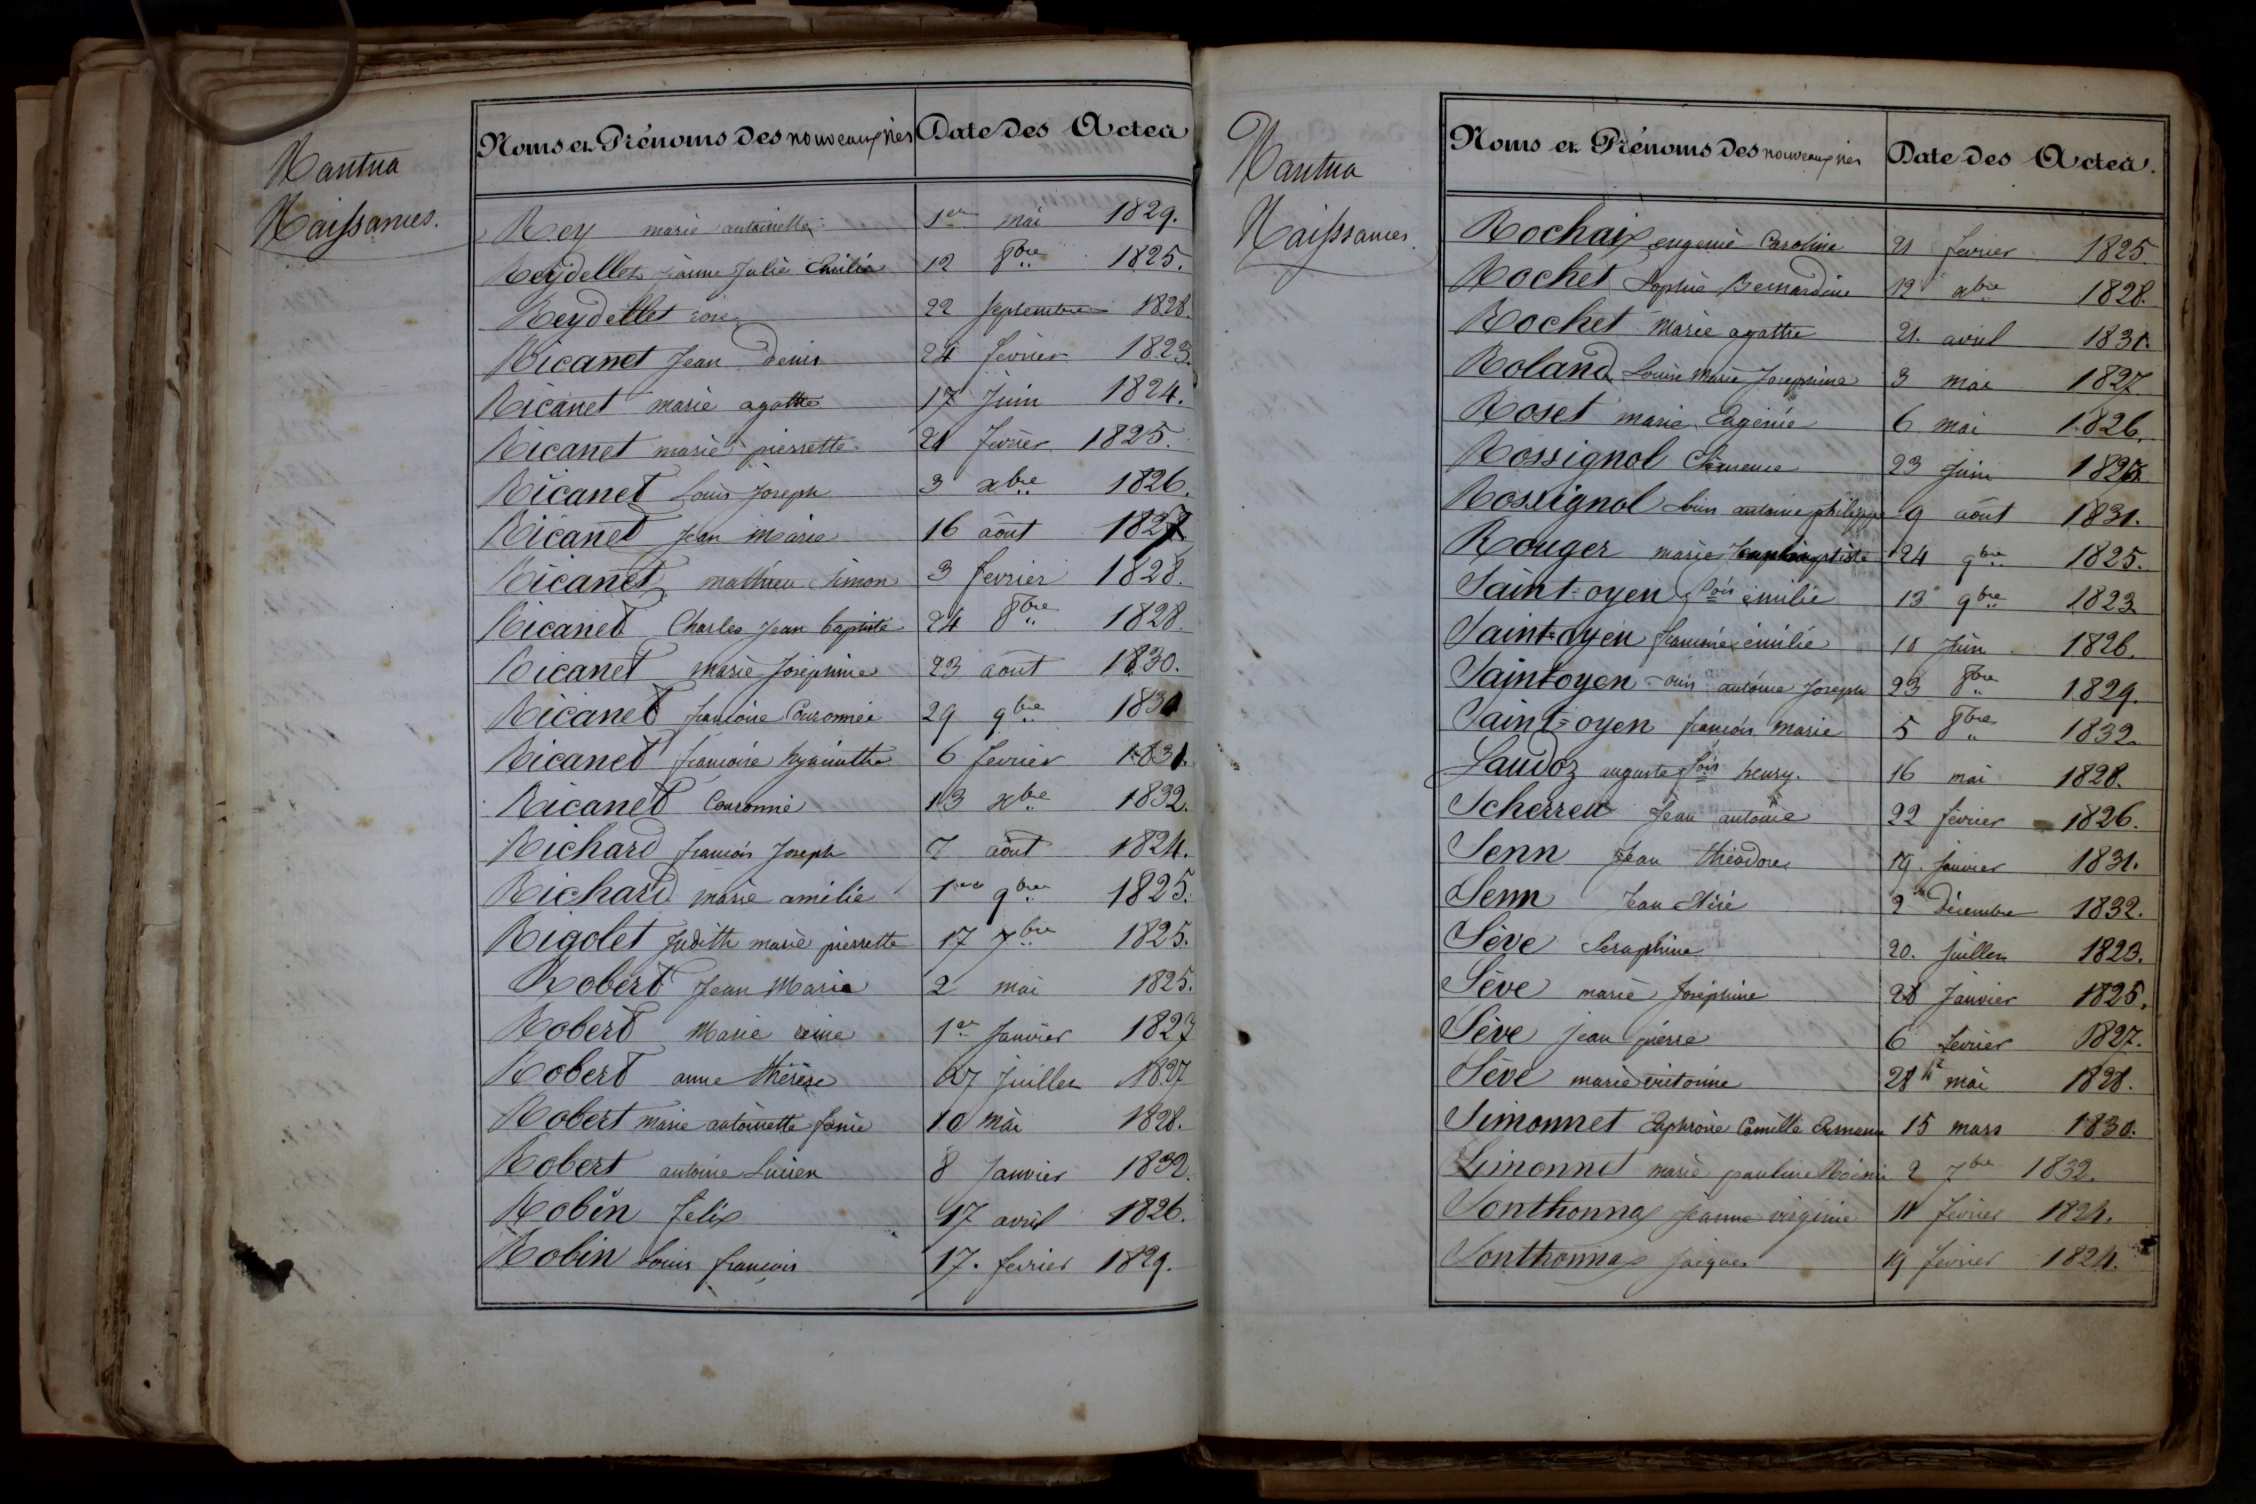 Nantua
Naissances.
Noms et Prénoms des nouveaux nés Date des Actes
Rey marie antoinette 1er mai 1829.
Reydellet jeanne Julie Emilie 12 8bre 1825.
Reydellet rose 22 Septembre 1828.
Ricanet Jean Denis 24 fevrier 1823.
Ricanet marie agathe 17 Juin 1824.
Ricanet marie pierrette 21 fevrier 1825.
Ricanet Louis Joseph 3 xbre 1826.
Ricanet Jean Marie 16 août 1827
Ricanet mathieu Simon 3 fevrier 1828.
Ricanet Charles Jean baptiste 24 8bre 1828.
Ricanet marie Joséphine 23 août 1830.
Ricanet francoise Couronnée 29 9bre 1830
Ricanet francoise hyacinthe 6 fevrier 1831.
Ricanet Couronné 13 xbre 1832.
Richard francois Joseph 7 août 1824.
Richard marie amélie 1er 9bre 1825.
Rigolet Judith marie pierrette 17 7bre 1825.
Robert Jean Marie 2 mai 1825.
Robert Marie reine 1er Janvier 1827
Robert anne thérèse 27 Juillet 1827
Robert marie antoinette fanie 10 mai 1828.
Robert antoine Lucien 8 Janvier 1832.
Robin felix 17 avril 1826.
Robin Louis francois 17. fevrier 1829.
Nantua
Naissances.
Noms et Prénoms des nouveaux nés Date des Actes.
Rochaix eugenie Caroline 21 fevrier 1825.
Rochet Sophie Bernardine 12 xbre 1828.
Rochet Marie agathe 21. avril 1831.
Roland Louise Marie Josephine 3 mai 1827
Roset marie Eugénie 6 mai 1826.
Rossignol Clémence 23 Juin 1827
Rossignol Louis antoine philippe 9 août 1831.
Rouger marie 24 9bre 1825.
Saint=oyen fois émilie 13 9bre 1823
Saint=oyen francoise émilie 10 Juin 1826.
Saint=oyen Louis antoine Joseph 23 8bre 1829.
Saint=oyen francois marie 5 8bre 1832.
Saudoz auguste fois henry. 16 mai 1828.
Scherrer Jean antoine 22 fevrier 1826.
Senn Jean théodore 19. Janvier 1831.
Senn Jean 2 Décembre 1832.
Sève Seraphine 20. Juillet 1823.
Sève marie Joséphine 28 Janvier 1825.
Sève jean pierre 6 fevrier 1827.
Sève marie victorine 28 mai 1828.
Simonnet Camille 15 mars 1830.
Simonnet marie pauline 2 7bre 1832.
Sonthonnax jeanne virginie 11 fevrier 1824.
Sonthonnax Jacques 19 fevrier 1824.